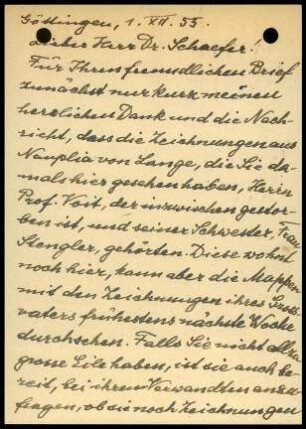 Göttingen, 1. XII. 55.
Lieber Herr Dr. Schaefer!
Für Ihren freundlichen Brief
zunächst nur kurz meinen
herzlichen Dank und die Nach-
richt, dass die Zeichnungen aus
Nauplia von Lange, die Sie da-
mals hier gesehen haben, Herrn
Prof. Voit, der inzwischen gestor-
ben ist, und seiner Schwester, Frau
Stengler, gehörten. Diese wohnt
noch hier, kann aber die Mappen
mit den Zeichnungen ihres Gross-
vaters frühestens nächste Woche
durchsehen. Falls Sie nicht allzu
grosse Eile haben, ist sie auch be-
reit, bei ihren Verwandten anzu-
fragen, ob sie noch Zeichnungen